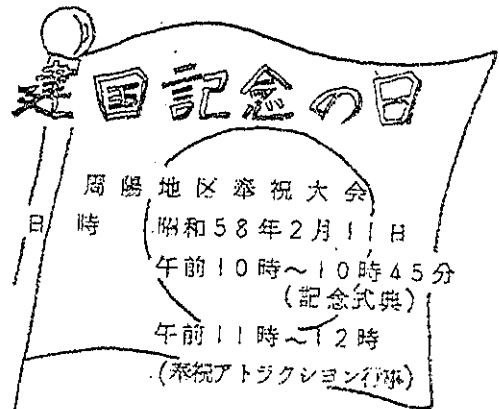 建国記念の日
周陽地区奉祝大会
日時 昭和58年2月11日
午前10時〜10時45分
(記念式典)
午前11時〜12時
(奉祝アトラクション行事)